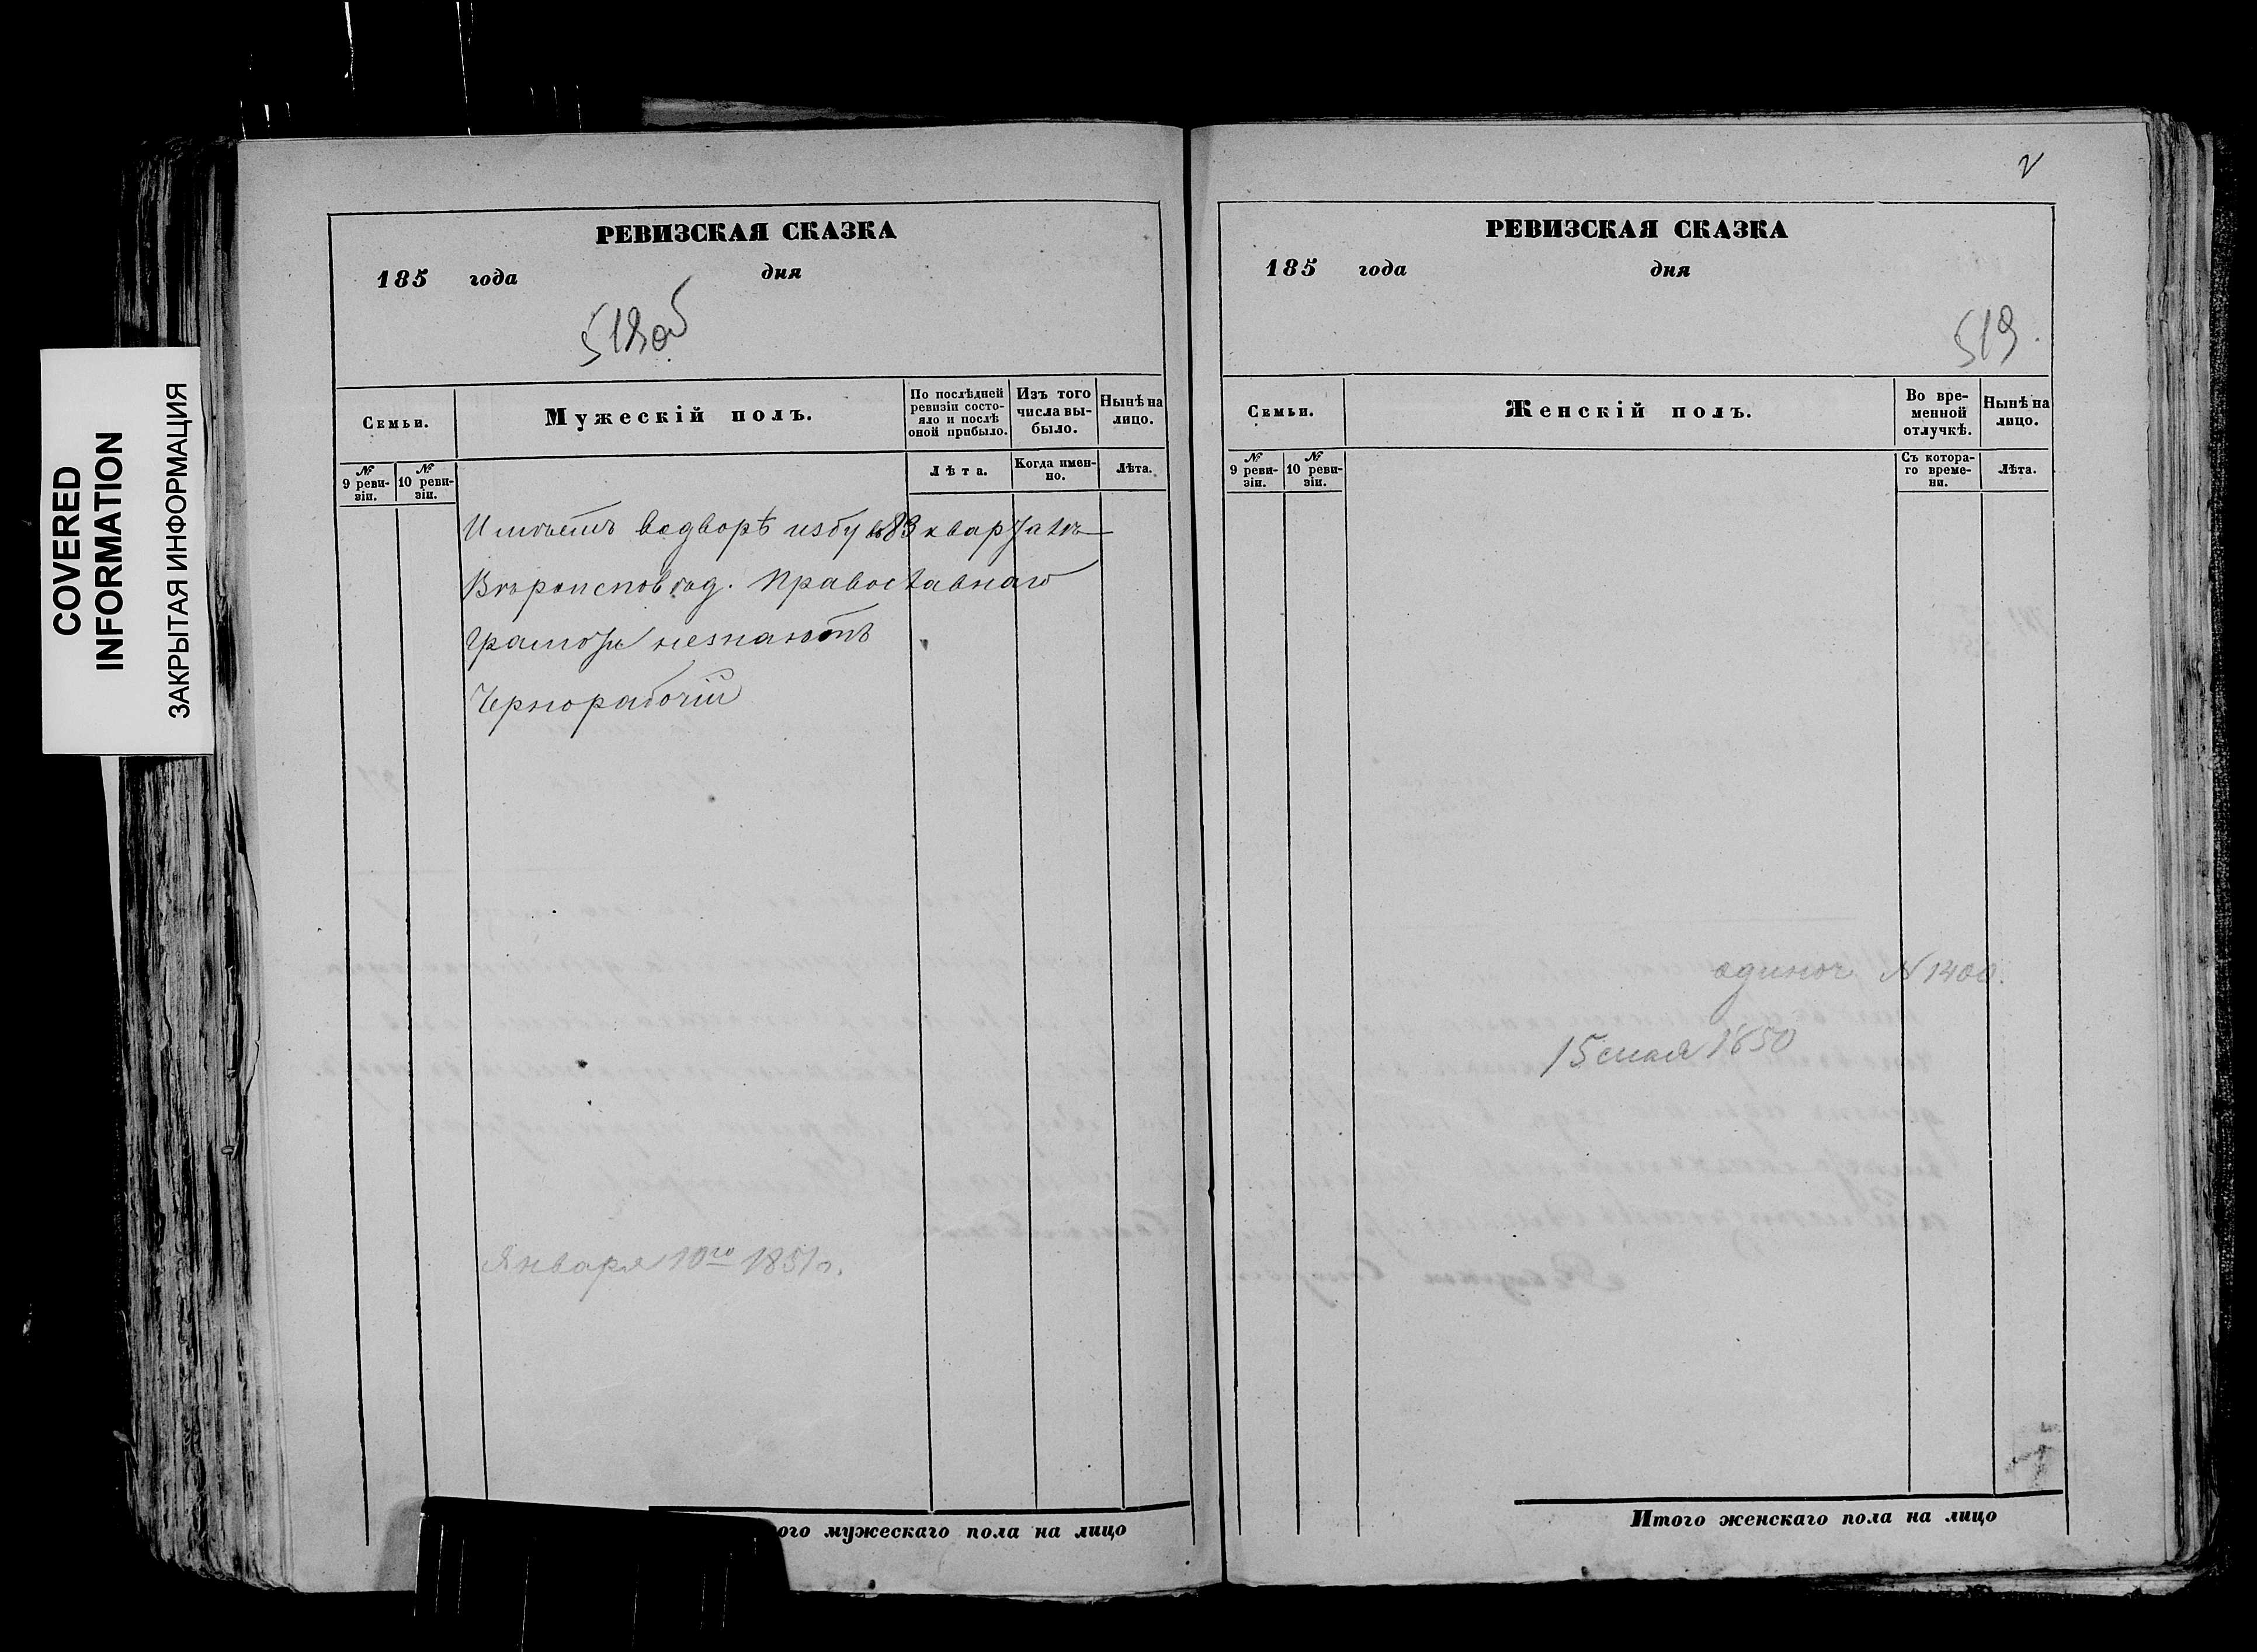 COVERED
INFORMATION
ЗАКРЫТАЯ ИНФОРМАЦИЯ
РЕВИЗСКАЯ СКАЗКА
185 года дня
518об
Семьи.
Мужескій полъ.
По послѣдней ревизіи состо-
яло и послѣ
оной прибыло.
Изъ того
числа вы-
было.
Нынѣ на
лицо.
№
9 реви-
зіи.
№
10 реви-
зіи.
Лѣта.
Когда имен-
но.
Лѣта.
Имѣетъ водворѣ избу в 83 кварталѣ
Вѣроисповѣд. Православнаго
Грамоты незнаютъ
Чернорабочій
Января 10го 1851г.
ого мужескаго пола на лицо
2
РЕВИЗСКАЯ СКАЗКА
185 года дня
519.
Семьи.
Женскій полъ.
Во вре-
менной
отлучкѣ.
Нынѣ на
лицо.
№
9 реви-
зіи.
№
10 реви-
зіи.
Съ котора-
го време-
ни.
Лѣта.
одиноч N 1400.
15 мая 1850
Итого женскаго пола на лицо